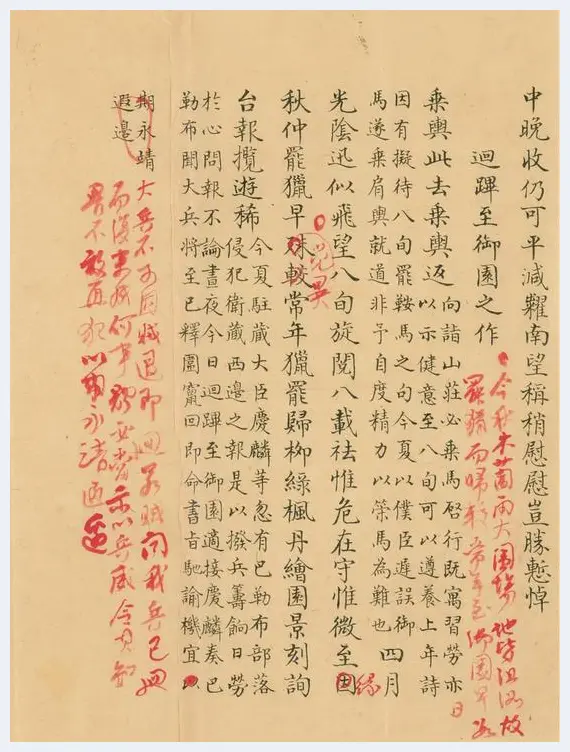 中晚收仍可平減糶南望稱稍慰慰豈勝慙悼
迴蹕至御園之作
今秋木蘭雨大圍場地皆沮洳故
罷獵而歸較常年至御園早数日
乘輿此去乘輿返
向詣山莊必乘馬啓行既寓習勞亦
以示健意至八旬可以遵養上年詩
因有擬待八旬罷鞍馬之句今夏以僕臣遲誤御
馬遂乘肩輿就道非予自度精力以策馬為難也
四月
光陰迅似飛望八旬旋閱八載祛惟危在守惟微至因
緣
覺異
秋仲罷獵早殊較常年獵罷歸柳綠楓丹繪園景刻詢
台報攬遊稀
今夏駐藏大臣慶麟等忽有巴勒布部落
侵犯衛藏西邊之報是以撥兵籌餉日勞
於心問報不論晝夜今日迴蹕至御園適接慶麟奏巴
勒布聞大兵將至已釋圍竄回即命書旨馳諭機宜以
期永靖
遐邊
大兵不可因賊退即迴若賊聞我兵已迴
而復來成何事體必當示以兵威令其知
畏不敢再犯以期永靖西邊